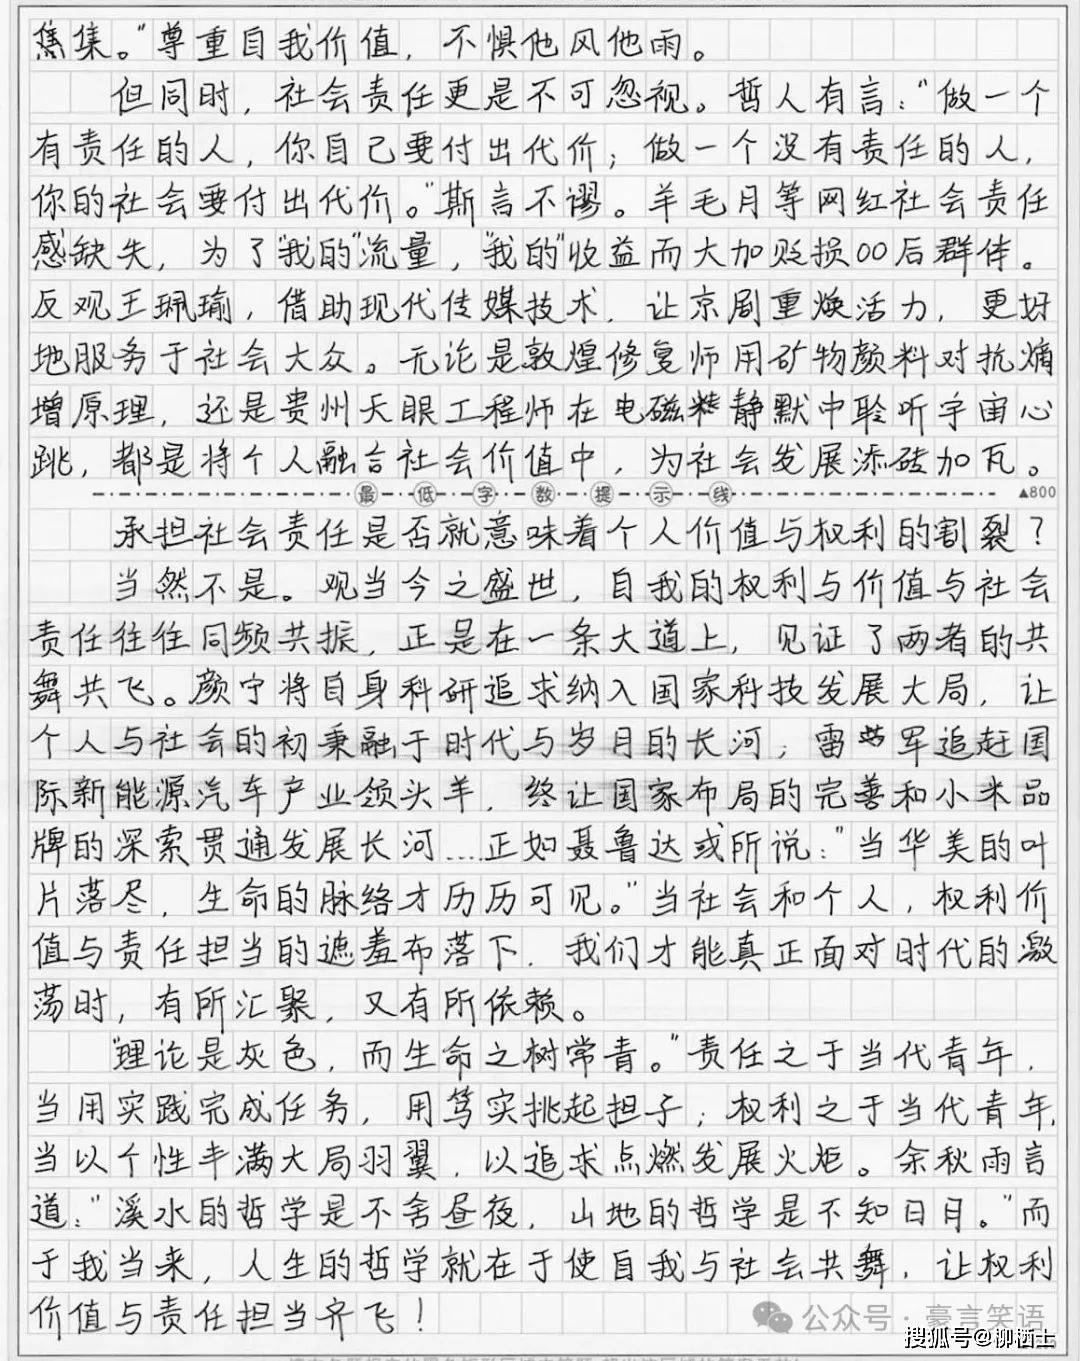 焦集。"尊重自我价值，不惧他风他雨。
但同时，社会责任更是不可忽视。哲人有言："做一个
有责任的人，你自己要付出代价；做一个没有责任的人，
你的社会要付出代价。"斯言不谬。羊毛月等网红社会责任
感缺失，为了"我的"流量，"我的"收益而大加贬损00后群体。
反观王珮瑜，借助现代传媒技术，让京剧重焕活力，更好
地服务于社会大众。无论是敦煌修复师用矿物颜料对抗熵
增原理，还是贵州天眼工程师在电磁静默中聆听宇宙心
跳，都是将个人融合社会价值中，为社会发展添砖加瓦。
最低字数提示线 ▲800
承担社会责任是否就意味着个人价值与权利的割裂？
当然不是。观当今之盛世，自我的权利与价值与社会
责任往往同频共振，正是在一条大道上，见证了两者的共
舞共飞。颜宁将自身科研追求纳入国家科技发展大局，让
个人与社会的初秉融于时代与岁月的长河；雷军追赶国
际新能源汽车产业领头羊，终让国家布局的完善和小米品
牌的深索贯通发展长河……正如聂鲁达或所说："当华美的叶
片落尽，生命的脉络才历历可见。"当社会和个人，权利价
值与责任担当的遮羞布落下，我们才能真正面对时代的激
荡时，有所汇聚，又有所依赖。
"理论是灰色，而生命之树常青。"责任之于当代青年，
当用实践完成任务，用笃实挑起担子；权利之于当代青年，
当以个性丰满大局羽翼，以追求点燃发展火炬。余秋雨言
道："溪水的哲学是不舍昼夜，山地的哲学是不知日月。"而
于我当来，人生的哲学就在于使自我与社会共舞，让权利
价值与责任担当齐飞！
公众号·豪言笑语
搜狐号@柳栖士